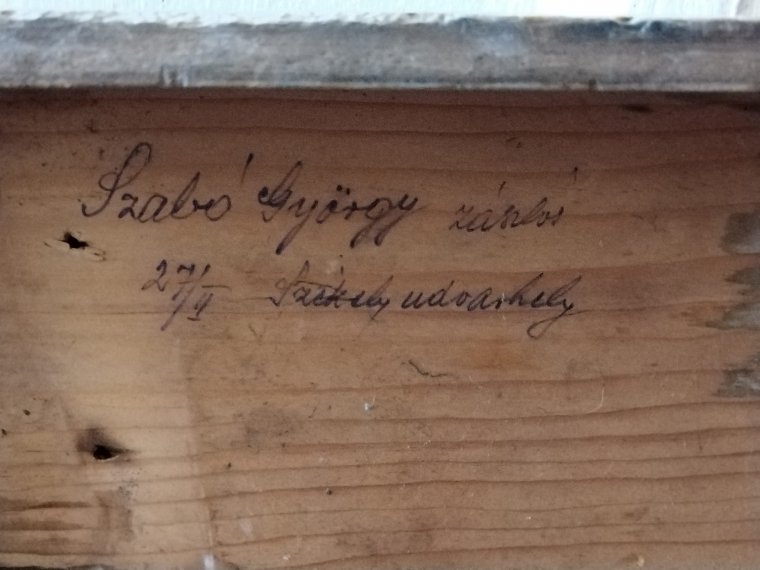 Szabó György zászlós
27/II Székelyudvarhely